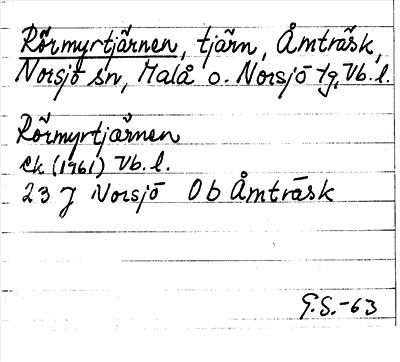 Rörmyrtjärnen, tjärn, Åmträsk,
Norsjö sn, Malå o. Norsjö tg, Vb. l.
Rörmyrtjärnen
Ek (1961) Vb. l.
23 J Norsjö Ob Åmträsk
G.S.-63